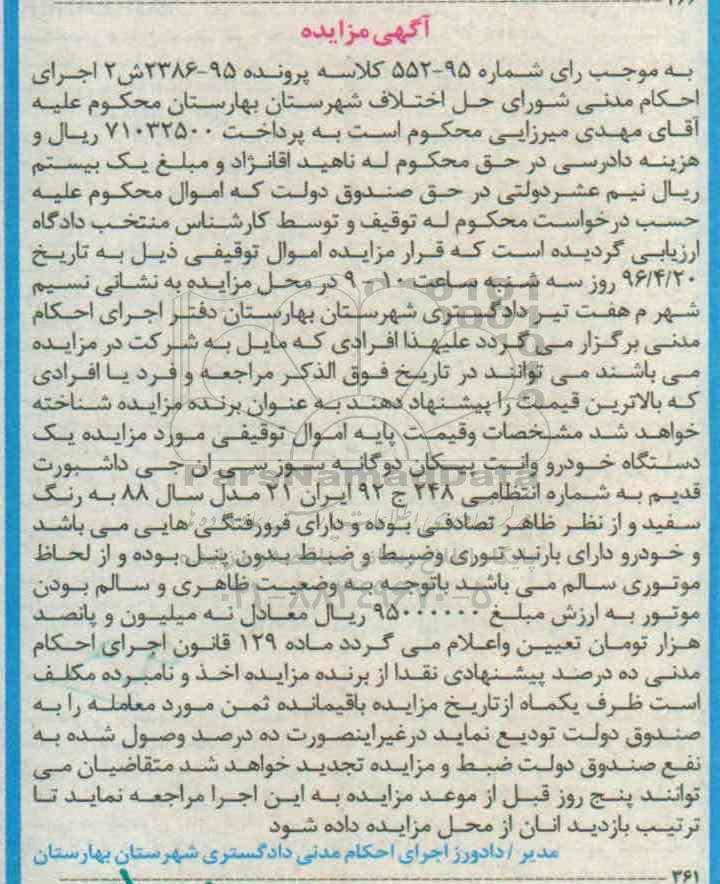 ۲۶۶
آگهی مزایده
به موجب رای شماره ۹۵-۵۵۲ کلاسه پرونده ۹۵-۲۳۸۶ش۲ اجرای
احکام مدنی شورای حل اختلاف شهرستان بهارستان محکوم علیه
آقای مهدی میرزایی محکوم است به پرداخت ۷۱۰۳۲۵۰۰ ریال و
هزینه دادرسی در حق محکوم له ناهید اقانژاد و مبلغ یک بیستم
ریال نیم عشردولتی در حق صندوق دولت که اموال محکوم علیه
حسب درخواست محکوم له توقیف و توسط کارشناس منتخب دادگاه
ارزیابی گردیده است که قرار مزایده اموال توقیفی ذیل به تاریخ
۹۶/۴/۲۰ روز سه شنبه ساعت ۱۰ - ۹ در محل مزایده به نشانی نسیم
شهر م هفت تیر دادگستری شهرستان بهارستان دفتر اجرای احکام
مدنی برگزار می گردد علیهذا افرادی که مایل به شرکت در مزایده
می باشند می توانند در تاریخ فوق الذکر مراجعه و فرد یا افرادی
که بالاترین قیمت را پیشنهاد دهند به عنوان برنده مزایده شناخته
خواهد شد مشخصات وقیمت پایه اموال توقیفی مورد مزایده یک
دستگاه خودرو وانت پیکان دوگانه سوز سی ان جی داشبورت
ParsNamadData
قدیم به شماره انتظامی ۲۴۸ ج ۹۲ ایران ۲۱ مدل سال ۸۸ به رنگ
سفید و از نظر ظاهر تصادفی بوده و دارای فرورفتگی هایی می باشد
و خودرو دارای باربند تنوری وضبط و ضبط بدون پنل بوده و از لحاظ
موتوری سالم می باشد باتوجه به وضعیت ظاهری و سالم بودن
۰۲۱-۸۸۳۴۹۶۷۰-۵
موتور به ارزش مبلغ ۹۵۰۰۰۰۰۰ ریال معادل نه میلیون و پانصد
هزار تومان تعیین واعلام می گردد ماده ۱۲۹ قانون اجرای احکام
مدنی ده درصد پیشنهادی نقدا از برنده مزایده اخذ و نامبرده مکلف
است ظرف یکماه ازتاریخ مزایده باقیمانده ثمن مورد معامله را به
صندوق دولت تودیع نماید درغیراینصورت ده درصد وصول شده به
نفع صندوق دولت ضبط و مزایده تجدید خواهد شد متقاضیان می
توانند پنج روز قبل از موعد مزایده به این اجرا مراجعه نماید تا
ترتیب بازدید انان از محل مزایده داده شود
مدیر / دادورز اجرای احکام مدنی دادگستری شهرستان بهارستان
۳۶۱